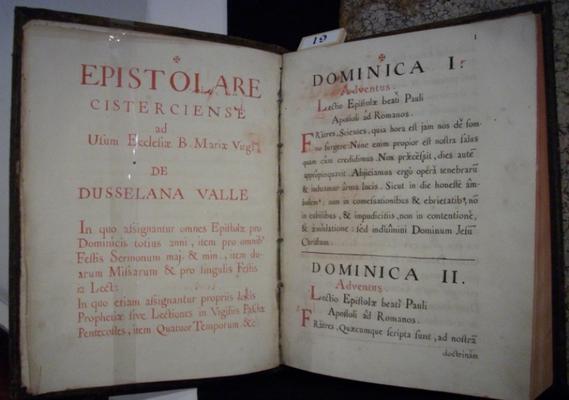 EPISTOLARE
CISTERCIENSE
ad
Usum Ecclesiæ B. Mariæ Virgīs
DE
DUSSELANA VALLE
In quo assignantur omnes Epistolæ pro
Dominicis totius anni, item pro omnibꝰ
Festis Sermonum maj. & min., item du-
arum Missarum & pro singulis Festis
12 Lect:
In quo etiam assignantur propriis locis
Prophetiæ sive Lectiones in Vigiliis Paschæ
Pentecostes, item Quatuor Temporum. &c.
19
1
DOMINICA I.
Adventus.
Lectio Epistolæ beati Pauli
Apostoli ad Romanos.
FRatres. Scientes, quia hora est jam nos de som-
no surgere: Nunc enim propior est nostra salus
quam cùm credidimus. Nox præcessit, dies autē
appropinquavit. Abjiciamus ergò opera tenebrarū
& induamur arma lucis. Sicut in die honestè am-
bulemꝰ; non in comessationibus & ebrietatibꝰ, nō
in cubilibus, & impudicitiis, non in contentione,
& æmulatione: sed induimini Dominum Jesū
Christum.
DOMINICA II.
Adventus.
Lectio Epistolæ beati Pauli
Apostoli ad Romanos.
FRatres. Quæcumque scripta sunt, ad nostrā
doctrinam